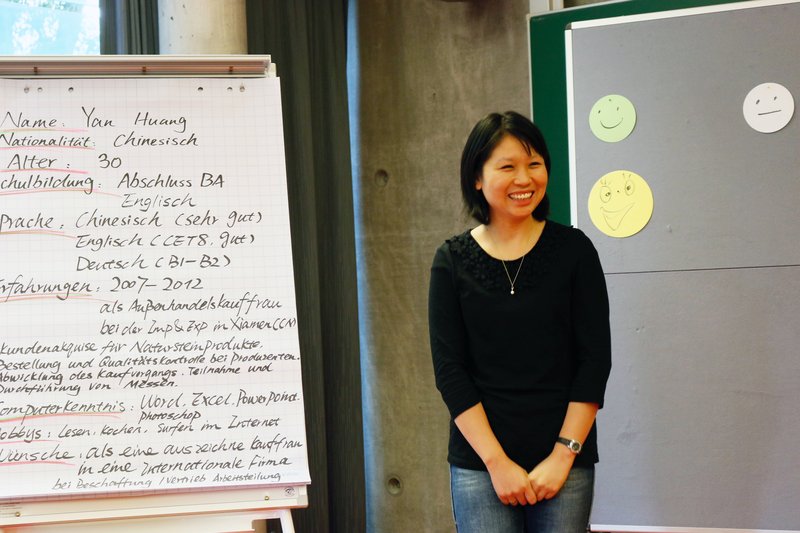 Name: Yan Huang
Nationalität: Chinesisch
Alter: 30
chulbildung: Abschluss BA
Englisch
prache: Chinesisch (sehr gut)
Englisch (CET8, gut)
Deutsch (B1-B2)
rfahrungen: 2007-2012
als Außenhandelskauffrau
bei der Imp&Exp in Xiamen (CN)
kundenakquise für Natursteinprodukte,
Bestellung und Qualitätskontrolle bei Produzenten.
Abwicklung des Kaufvorgangs. Teilnahme und
Durchführung von Messen.
omputerkenntnis: Word, Excel, PowerPoint.
Photoschop
obbys: Lesen, Kochen, Surfen im Internet
Wünsche: als eine auszeichne Kauffrau
in eine Internationale Firma
bei Beschaffung / Vertrieb Arbeitsteilung